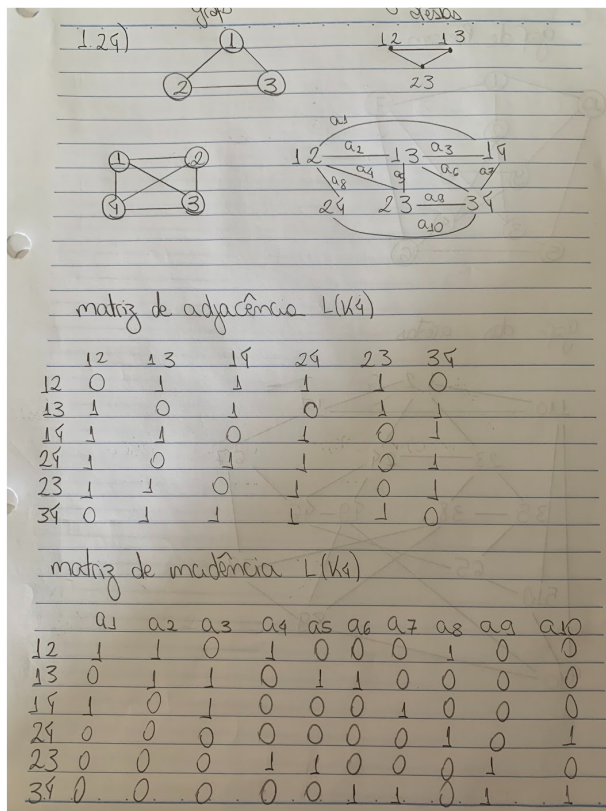 grafo arestas
1.24)
1 12 13
2 3 23
a1
1 2 12 a2 13 a3 14
a8 a4 a5 a6 a7
4 3 24 23 a9 34
a10
matriz de adjacência L(K4)
12 13 14 24 23 34
12 0 1 1 1 1 0
13 1 0 1 0 1 1
14 1 1 0 1 0 1
24 1 0 1 1 0 1
23 1 1 0 1 0 1
34 0 1 1 1 1 0
matriz de incidência L(K4)
a1 a2 a3 a4 a5 a6 a7 a8 a9 a10
12 1 1 0 1 0 0 0 1 0 0
13 0 1 1 0 1 1 0 0 0 0
14 1 0 1 0 0 0 1 0 0 0
24 0 0 0 0 0 0 0 1 0 1
23 0 0 0 1 1 0 0 0 1 0
34 0 0 0 0 0 1 1 0 1 1